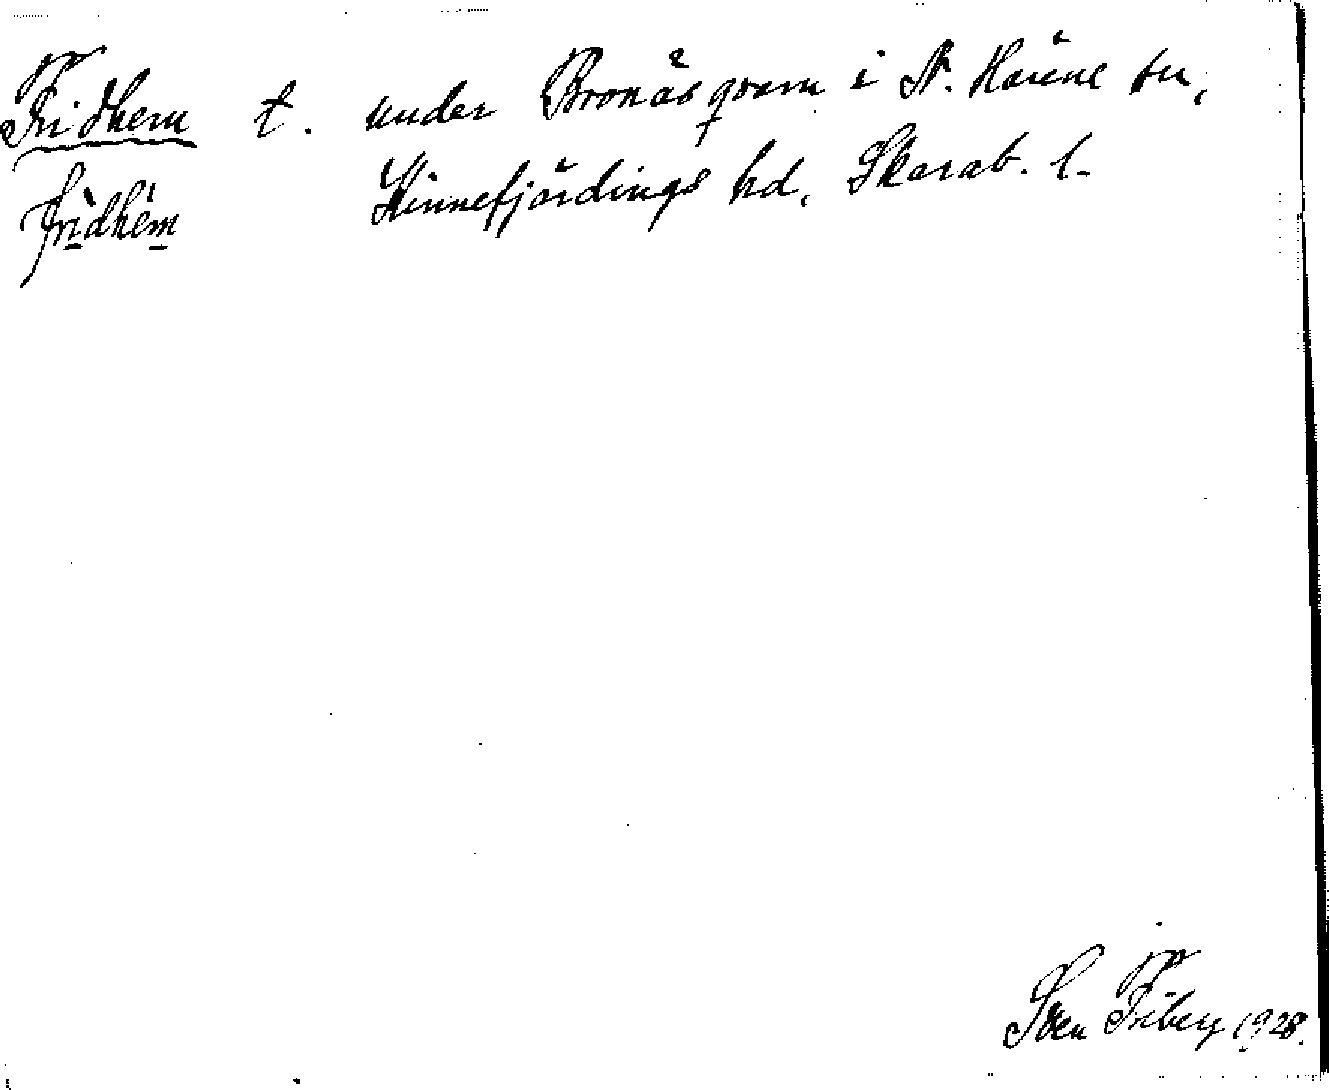 Fridhem t. under Bronäs qvarn i N. Härene sn,
frìdhém Kinnefjärdings hd, Skarab. l.
Sven Friberg 1928.